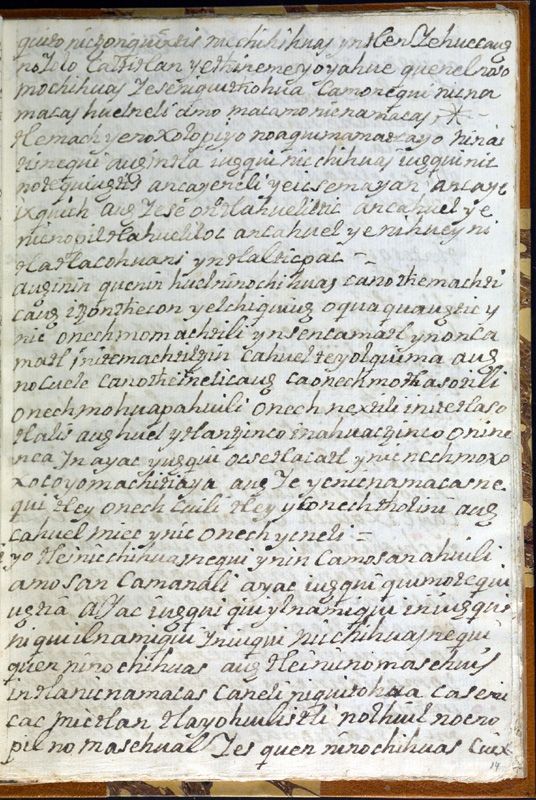 quito nictzonquixtis nicchihuas yntlen Zehuecauh
nozolo Cattitlan yethineme yoyahue quenel noso
mochihuas Zeseniquitohua Camonequi nicna
macas huelneli amo macamo nicnamacas,
tlemach yenoxolopiyo noaquimamatcayo nicna
tisnequi auh intla iuhqui nicchihuas iuhqui nic
notequiuhtis ancayeneli yeicsemayan ancaye
ixquich auh Zesé ontlahueliltic ancahuel ye
nicnopiltlahueliloc ancahuel ye nihuey ni
tlatlacohuani yntlalticpac
auhinin quenin huelninochihuas canotlemachti
cauh izontlecon yelchiquiuh oquaquauhtic y
nic onechmomachtili ynsencamatl ynonca
matl initemachtiltzin cahuel teyolquima auh
nocuele canothetneticauh caonechmotlasotili
onechmohuapahuili onechnextili initetlaso
tlalis auh huel ytlantzinco inahuactzinco onine
nca ynayac yuhqui ocsetlacatl ynic nechmoxo
xocoyomachitiaya auh Ze yenicnamacasne
qui tley onechcuili tley yc onechtholini auh
cahuel miec ynic onechycneli
yo tleinicchihuasnequi ynin Camosanahuili
amosan Camanali ayac iuhqui quimotequi
uhtia Ayac iuhqui quiylnamiqui iniuhqui
niquilnamiqui yniuqui nicchihuasnequi
quen ninochihuas auh tleininomasehuis
intlanicnamacas Caneli niquitohua caseni
cac mictlan tlayohuilistli nothuil nocno
pil nomasehual Zes quen ninochihuas Cuix
14